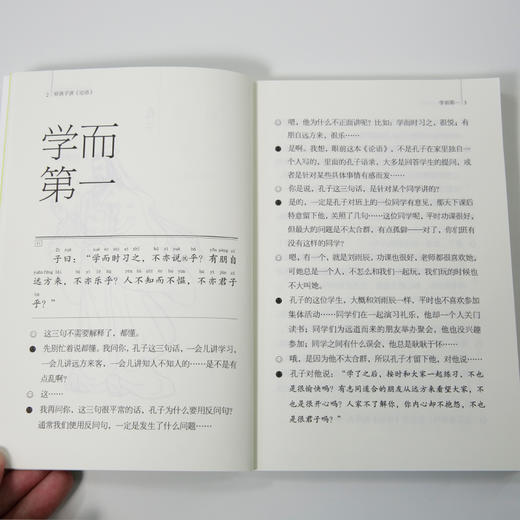 2 给孩子讲《论语》
学而
第一
子曰：“学而时习之，不亦说乎？有朋自
远方来，不亦乐乎？人不知而不愠，不亦君子
乎？”
☺ 这三句不需要解释了，都懂。
● 先别忙着说都懂。我问你，孔子这三句话，一会儿讲学习，
一会儿讲远方来客，一会儿讲知人不知人的……是不是有
点乱啊？
☺ 这……
● 我再问你，这三句很平常的话，孔子为什么要用反问句？
通常我们使用反问句，一定是发生了什么问题……
学而第一 3
☺ 嗯，他为什么不正面讲呢？比如：学而时习之，很悦；有
朋自远方来，很乐……
● 是啊。我想，眼前这本《论语》，不是孔子在家里独自一
个人写的，里面的孔子语录，大多是回答学生的提问，或
者是针对某些具体事情有感而发……
☺ 你是说，孔子这三句话，是针对某个同学讲的？
● 是的，一定是孔子对班上的一位同学有意见，那天下课后
特意留下他，关照了几句……这位同学呢，平时功课很好，
但最大的问题是不太合群，有点孤僻——对了，你们班有
没有这样的同学？
☺ 嗯，有一个，就是刘雨辰，功课也很好，老师都很喜欢她，
可她总是一个人，不怎么和我们一起玩，我们玩的时候也
不大叫她。
● 孔子的这位学生，大概和刘雨辰一样，平时也不喜欢参加
集体活动……同学们在一起演习礼乐，他却一个人关门
读书；同学们为远道而来的朋友举办聚会，他也没兴趣
参加；同学之间有什么误会，他总是耿耿于怀……
☺ 哦，是因为他不太合群，所以孔子才留下他，对他说……
● 孔子对他说：“学了之后，按时和大家一起练习，不也
是很愉快吗？有志同道合的朋友从远方来看望大家，不
也是很开心吗？人家不了解你，你内心却不抱怨，不也
是很君子吗？”